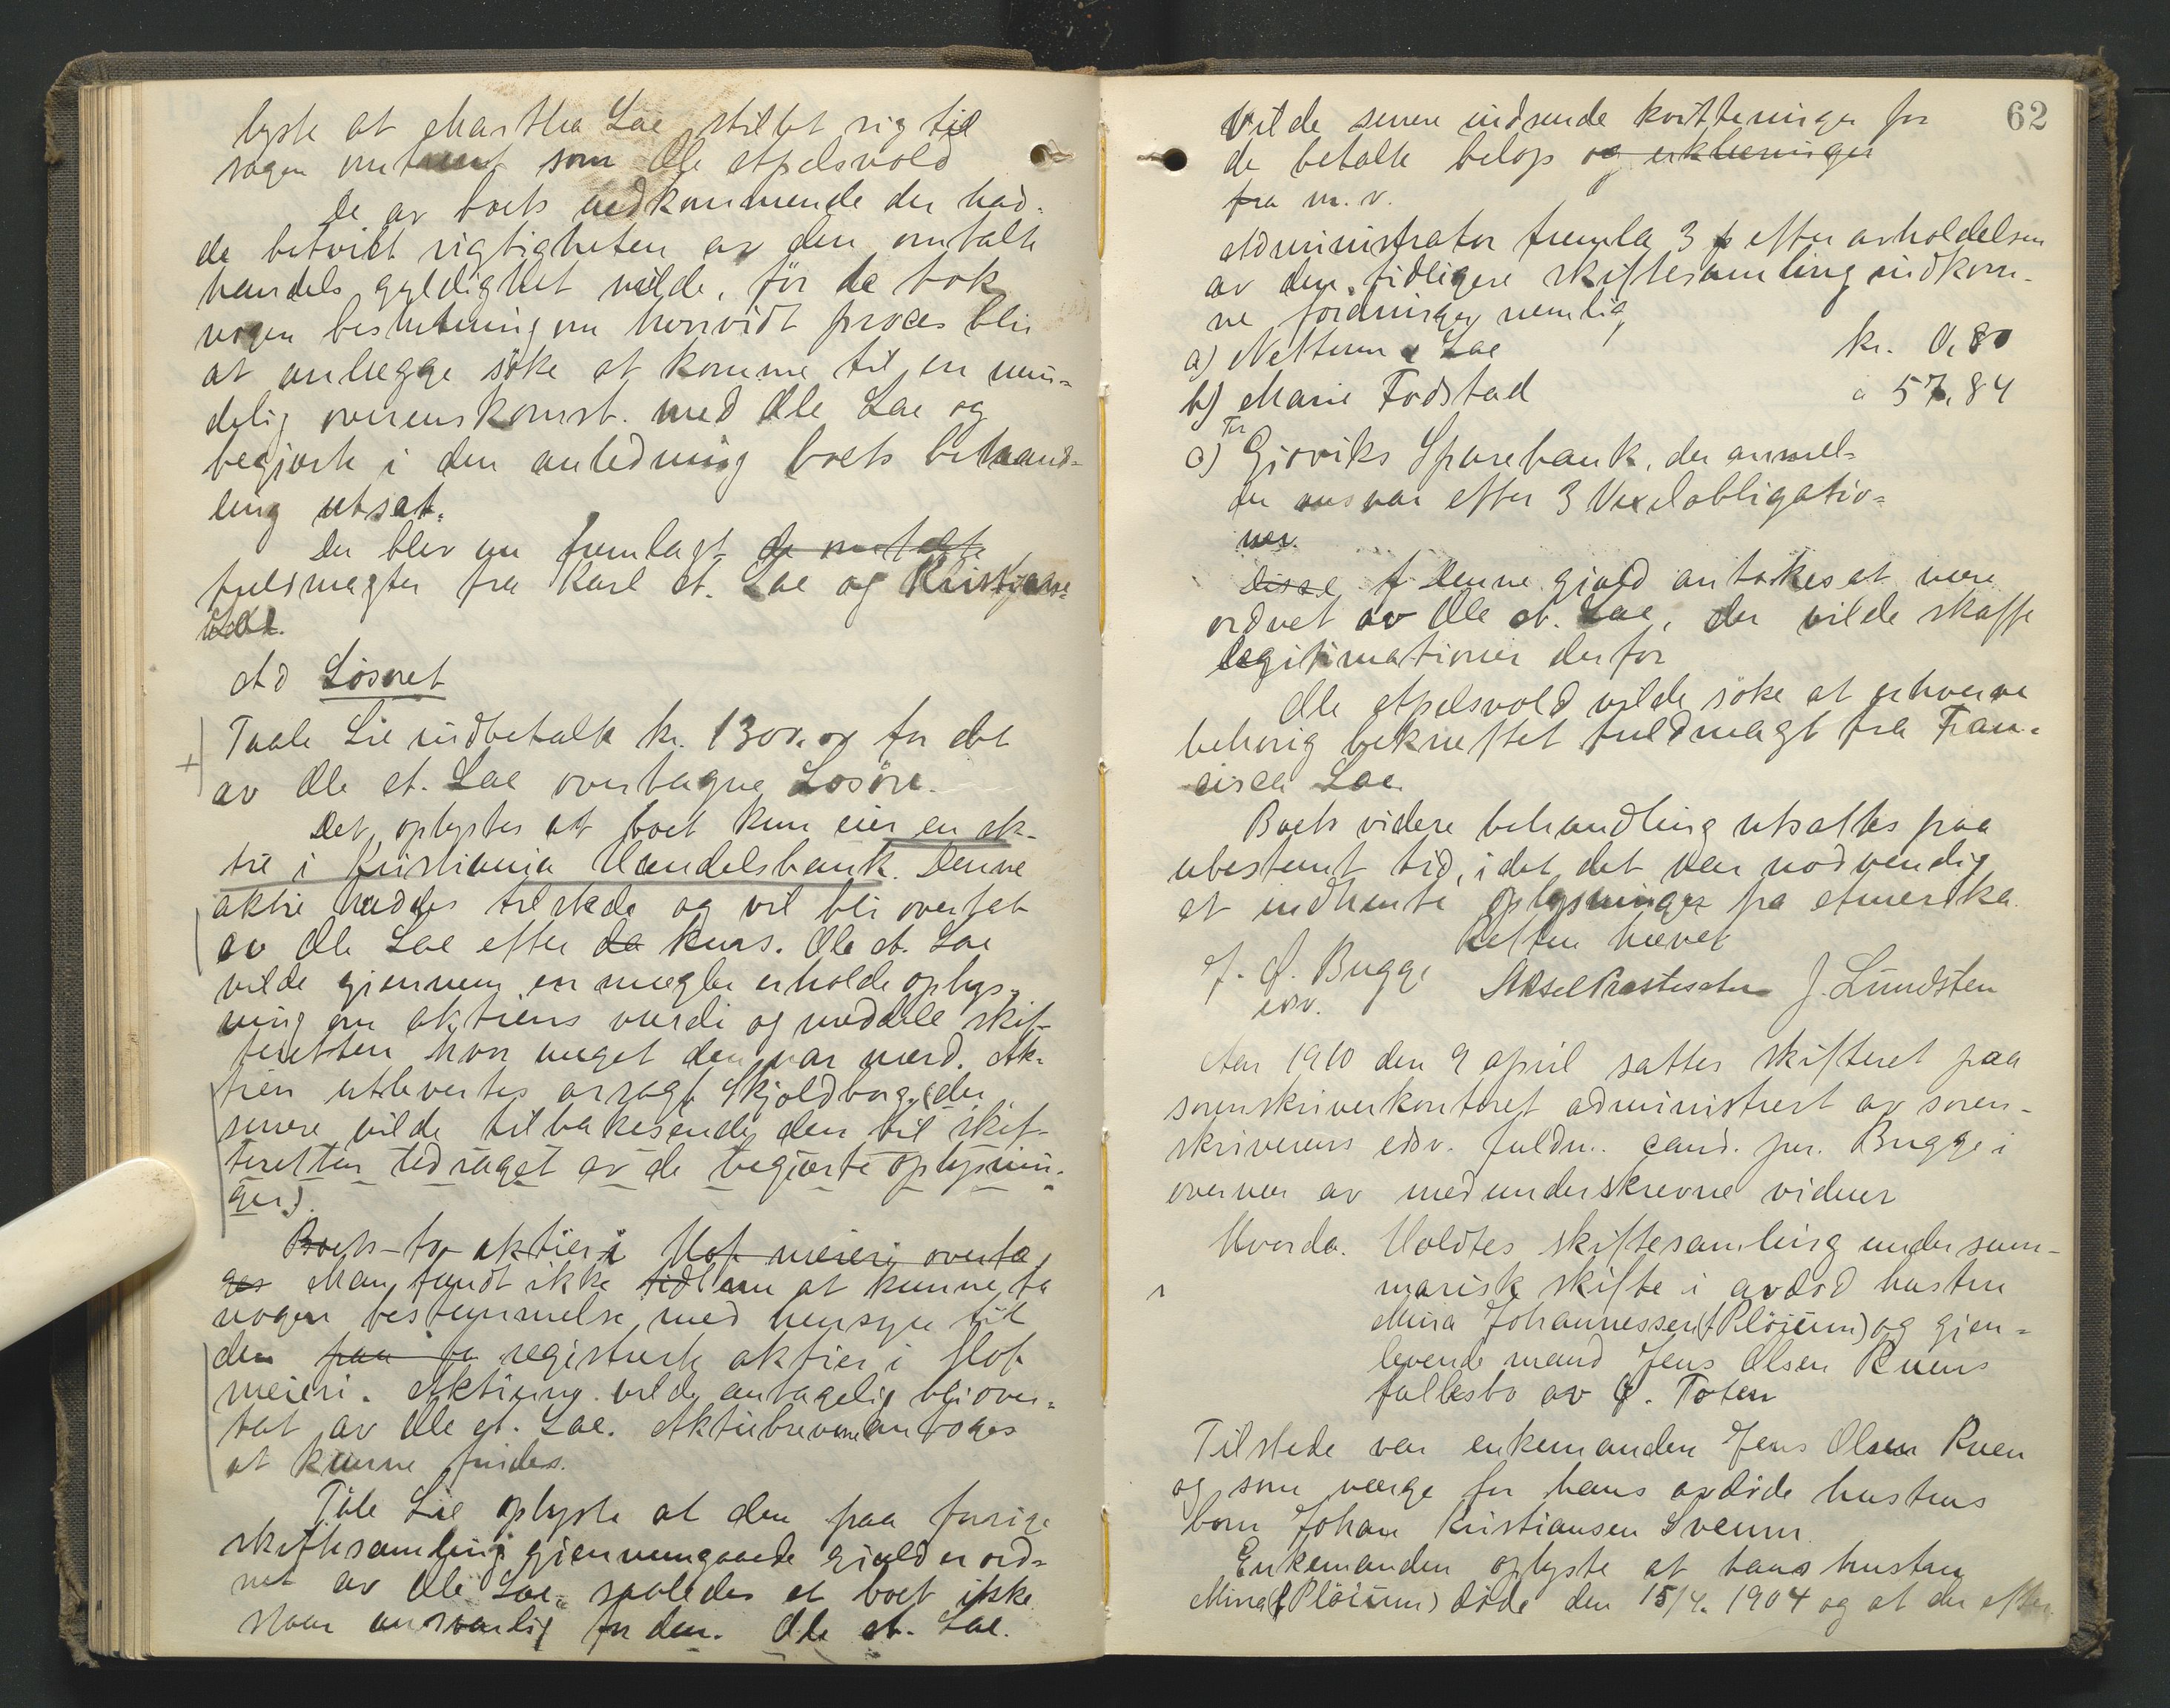 lyste at Martha Lae stillet sig til
sagen omtrent som Ole Apelsvold
De av boets vedkommende der had-
de betvilt rigtigheten av den omtalte
handels gyldighet vilde, før de tok
nogen beslutning om hvorvidt proces blir
at anlægge søke at komme til en min-
delig overenskomst med Ole Lae og
begjærte i den anledning boets behand-
ling utsat.
Der blev nu fremlagt de omtalte
fuldmagter fra Karl A. Lae og Kristiane
Lae.
Ad Løsøret
Taale Lie indbetalte kr. 1300.00 for det
av Ole A. Lae overtagne Løsøre.
Det oplystes at boet kun eier en ak-
tie i Kristiania Handelsbank. Denne
aktie haddes tilstede og vil bli overtat
av Ole Lae efter da kurs. Ole A. Lae
vilde gjennem en mægler erholde oplys-
ning om aktiens værdi og meddele skif-
teretten hvor meget den var værd. Ak-
tien utlevertes orsagf. Skjoldborg (der
senere vilde tilbakesende den til skif-
teretten ledsaget av de begjærte oplysnin-
ger).
Boets to aktier i Hof meieri overta
ges Man fandt ikke tid en at kunne ta
nogen bestemmelse med hensyn til
den paa fo registrerte aktier i Hof
meieri. Aktierne vilde antagelig bli over-
tat av Ole A. Lae. Aktiebrevene antoges
at kunne findes.
Tåle Lie oplyste at den paa forrige
skiftesamling gjennemgaaede gjæld er ord-
net av Ole Lae, saaledes at boet ikke
staar ansvarlig for den. Ole A. Lae.
62
Vilde senere indsende kvitteringer for
de betalte beløp og erklæringer
fra m. v.
Administrator fremla 3 p efter avholdelsen
av den tidligere skiftesamling indkom-
ne fordringer, nemlig
a) Nettum & Lae kr. 0,80
b) Marie Fodstad " 57,84
c) Fra Gjøviks Sparebank, der anmel-
der ansvar efter 3 Vexelobligatio-
ner.
Disse f Denne gjæld antokes at være
ordnet av Ole A. Lae, der vilde skaffe
legitimationer derfor
Ole Apelsvold vilde søke at erhverve
behørig bekræftet fuldmagt fra Fran-
cisca Lae.
Boets videre behandling utsattes paa
ubestemt tid, idet det var nødvendig
at indhente oplysninger fra Amerika.
Retten hævet
J. A. Bugge
edsv.
J. Lundsten
Aar 1910 den 9 april sattes skifteret paa
sorenskriverkontoret administrert av soren-
skriverens edsv. fuldm. cand. jur. Bugge i
overvær av medunderskrevne vidner
Hvorda. Holdtes skiftesamling under sum-
marisk skifte i avdød hustru
Mina Johannessen (f Pløium) og gjen-
levende mand Jens Olsen Ruens
fællesbo av Ø. Toten
Tilstede var enkemanden Jens Olsen Ruen
og som værge for hans avdøde hustrus
barn Johan Kristiansen Sveum.
Enkemanden oplyste at hans hustru
Mina (f Pløium) døde den 15/4. 1904 og at der efter